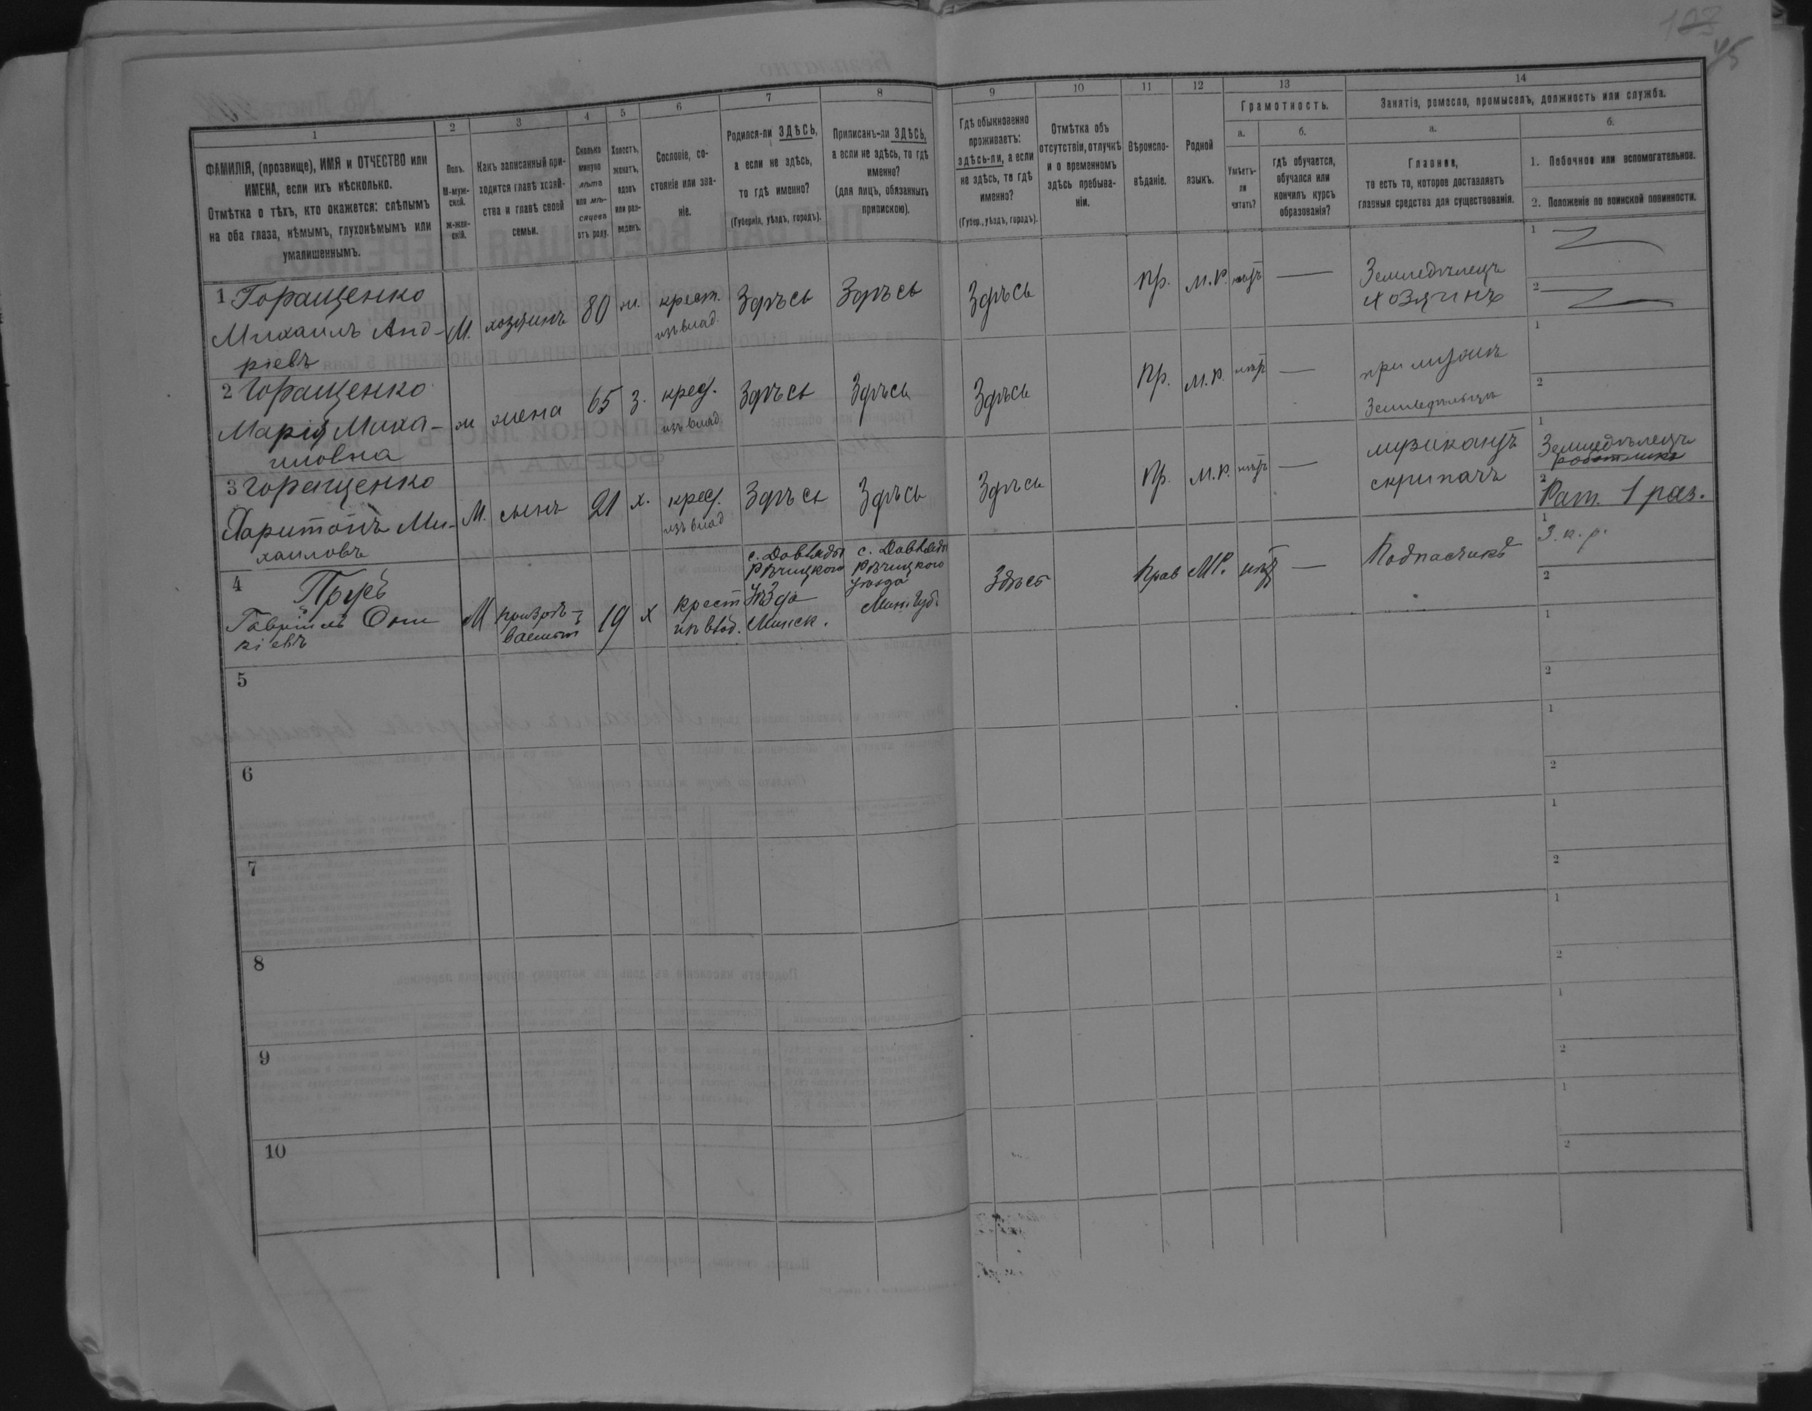 45
1 2 3 4 5 6 7 8 9 10 11 12 13 14
ФАМИЛІЯ, (прозвище), ИМЯ и ОТЧЕСТВО или
ИМЕНА, если ихъ нѣсколько.
Отмѣтка о тѣхъ, кто окажется: слѣпымъ
на оба глаза, нѣмымъ, глухонѣмымъ или
умалишеннымъ.
Полъ.
М-муж-
ской.
Ж-жен-
скій.
Какъ записанный при-
ходится главѣ хозяй-
ства и главѣ своей
семьи.
Сколько
минуло
лѣтъ
или мѣ-
сяцевъ
отъ роду.
Холостъ,
женатъ,
вдовъ
или раз-
веденъ.
Сословіе, со-
стояніе или зва-
ніе.
Родился-ли ЗДѢСЬ,
а если не здѣсь,
то гдѣ именно?
(Губернія, уѣздъ, городъ).
Приписанъ-ли ЗДѢСЬ,
а если не здѣсь, то гдѣ
именно?
(для лицъ, обязанныхъ
припискою).
Гдѣ обыкновенно
проживаетъ:
здѣсь-ли, а если
не здѣсь, то гдѣ
именно?
(Губер., уѣздъ, городъ).
Отмѣтка объ
отсутствіи, отлучкѣ
и о временномъ
здѣсь пребыва-
ніи.
Вѣроиспо-
вѣданіе.
Родной
языкъ.
Грамотность.
а.
Умѣетъ-
ли
читать?
б.
гдѣ обучается,
обучался или
кончилъ курсъ
образованія?
Занятія, ремесло, промыселъ, должность или служба.
а.
Главное,
то есть то, которое доставляетъ
главныя средства для существованія.
б.
1. Побочное или вспомогательное.
2. Положеніе по воинской повинности.
1 Горащенко
Михаилъ Анд-
ріевъ
М. хозяинъ 80 ж. крест.
изъ влад.
Здѣсь Здѣсь Здѣсь Пр. М.Р. нѣтъ —
Земледѣлецъ
хозяинъ
1
2
2 Горащенко
Марія Миха-
иловна
ж жена 65 з. крес.
изъ влад
Здѣсь Здѣсь Здѣсь Пр. М.Р. нѣтъ —
при мужѣ
1
2
3 Горащенко
Харитонъ Ми-
хаиловъ
М. сынъ 21 х. крес.
изъ влад
Здѣсь Здѣсь Здѣсь Пр. М.Р. нѣтъ —
музикантъ
скрипачъ
1
Земледѣлецъ
2
Рат. 1 раз.
4
Гавріилъ
М 19 х
крест
изъ влад.
с. Давляды
Рѣчицкого
Уѣзда
Минск.
с. Давляды
Рѣчицкого
Уѣзда
Минс Губ.
Здѣсь Прав МР. нѣт —
Подпасчикъ
1
2
5
1
2
6
1
2
7
1
2
8
1
2
9
1
2
10
1
2